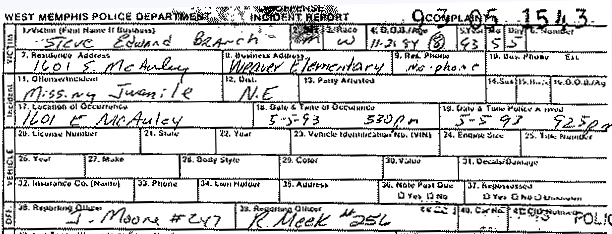 OFFENSE
WEST MEMPHIS POLICE DEPARTMENT INCIDENT REPORT COMPLAINT 93-05-1543
VICTIM 1. Victim (First Name if Business) 2. Sex 3. Race 4. D.O.B./Age 5. Yr. Mo. Day 6. Number
Steve Edward Branch M W 11-26-84 (8) 93 5 5
7. Residence Address 8. Business Address 9. Res. Phone 10. Bus. Phone Ext.
1601 S. McAuley Weaver Elementary No-phone
Incident 11. Offense/Incident 12. Dist. 13. Party Arrested 14. Sex 15. Race 16. D.O.B./Age
Missing Juvenile N.E
17. Location of Occurrence 18. Date & Time of Occurance 19. Date & Time Police Arrived
1601 E McAuley 5-5-93 330pm 5-5-93 925pm
VEHICLE 20. License Number 21. State 22. Year 23. Vehicle Identification No. (VIN) 24. Engine Size 25. Title Number
26. Year 27. Make 28. Body Style 29. Color 30. Value 31. Decals/Damage
32. Insurance Co. (Name) 33. Phone 34. Lien Holder 35. Address 36. Note Past Due 37. Repossessed
Yes No Yes No Unknown
OFF. 38. Reporting Officer 39. Reporting Officer 40. Car No.
J. Moore #247 R. Meek #256 POLIC